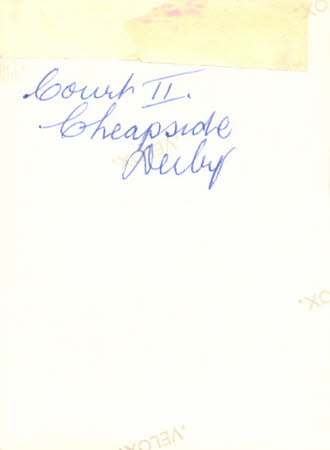 Court II.
Cheapside
Derby
VELOX.
OX.
VELOX.